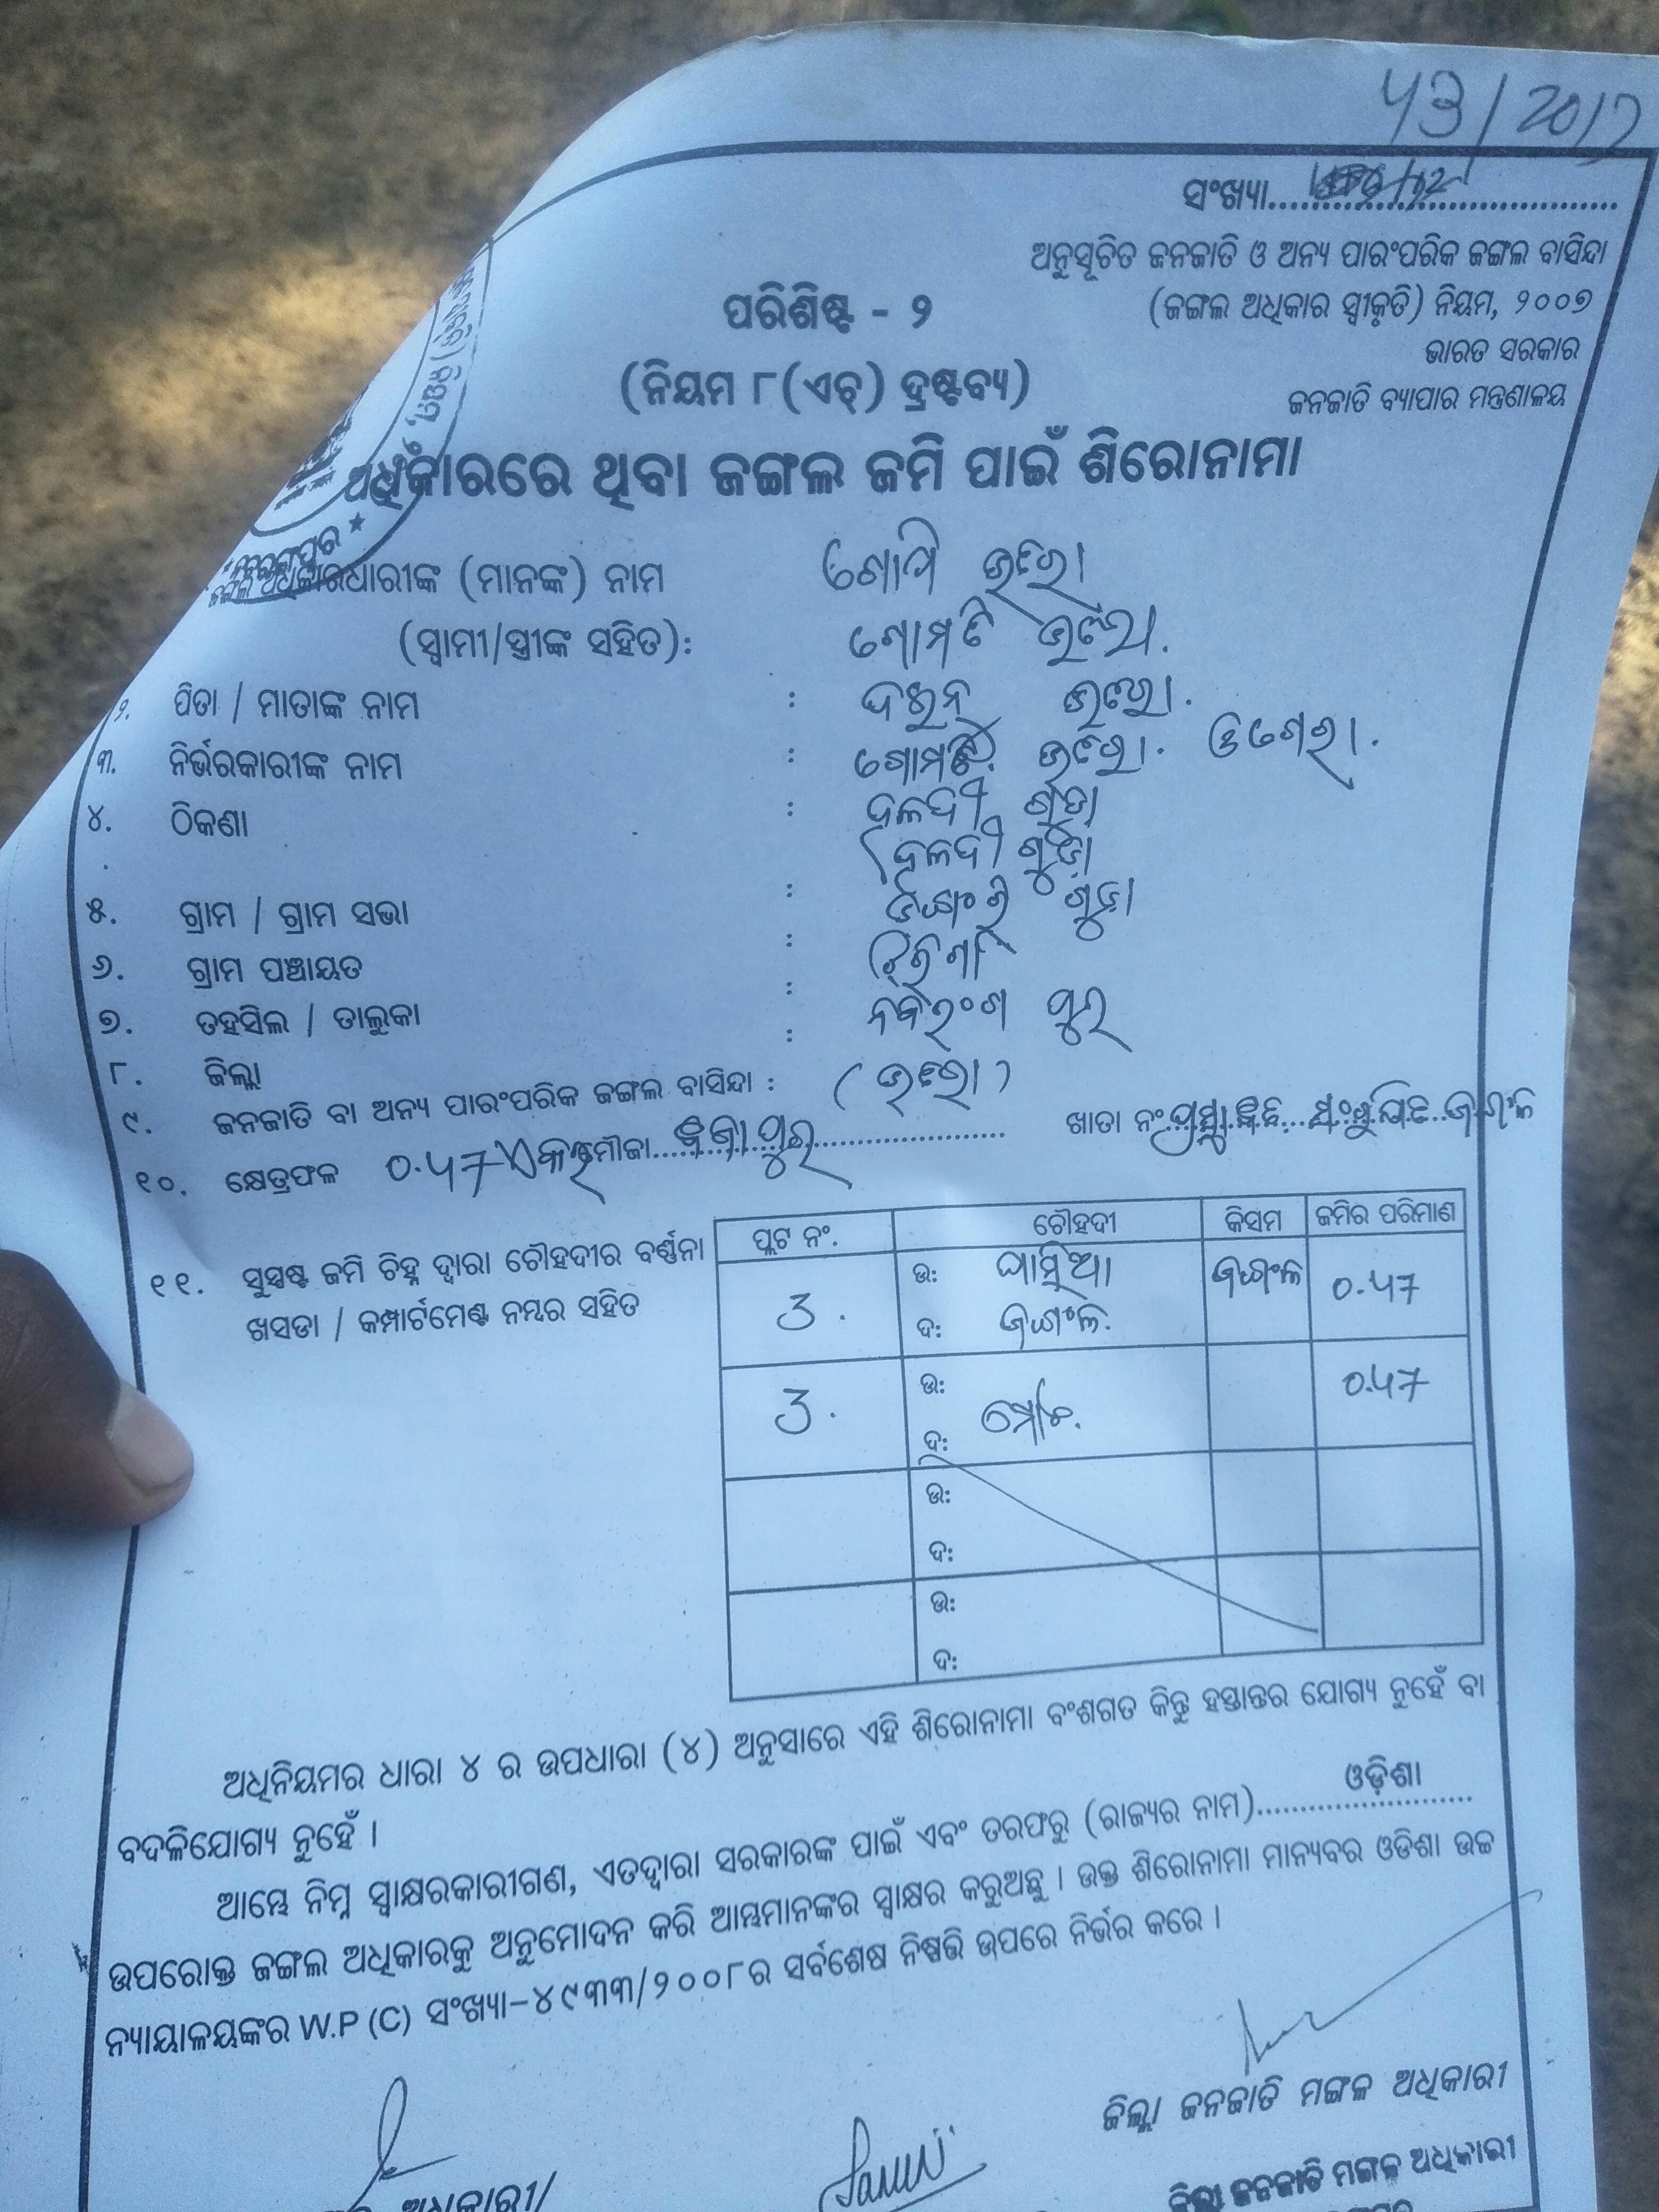 43/2017
ସଂଖ୍ୟା
ଅନୁସୂଚିତ ଜନଜାତି ଓ ଅନ୍ୟ ପାରଂପରିକ ଜଙ୍ଗଲ ବାସିନ୍ଦା
(ଜଙ୍ଗଲ ଅଧିକାର ସ୍ୱୀକୃତି) ନିୟମ, ୨୦୦୭
ଭାରତ ସରକାର
ଜନଜାତି ବ୍ୟାପାର ମନ୍ତ୍ରଣାଳୟ
ପରିଶିଷ୍ଟ - ୨
(ନିୟମ ୮(ଏଚ୍) ଦ୍ରଷ୍ଟବ୍ୟ)
ଅଧିକାରରେ ଥିବା ଜଙ୍ଗଲ ଜମି ପାଇଁ ଶିରୋନାମା
ଜଙ୍ଗଲ ଅଧିକାରଧାରୀଙ୍କ (ମାନଙ୍କ) ନାମ
(ସ୍ୱାମୀ/ସ୍ତ୍ରୀଙ୍କ ସହିତ): ଗୋମତି ଭତରା.
୨. ପିତା / ମାତାଙ୍କ ନାମ : ଭତରା.
୩. ନିର୍ଭରକାରୀଙ୍କ ନାମ : ଗୋମତି ଭତରା.
୪. ଠିକଣା : ଦଳଦୀ ଗୁଡା
(ଦଳଦୀ ଗୁଡା
୫. ଗ୍ରାମ / ଗ୍ରାମ ସଭା : ଗୁଡା
୬. ଗ୍ରାମ ପଞ୍ଚାୟତ :
୭. ତହସିଲ / ତାଲୁକା : ନବରଂଗ ପୁର
୮. ଜିଲ୍ଲା :
୯. ଜନଜାତି ବା ଅନ୍ୟ ପାରଂପରିକ ଜଙ୍ଗଲ ବାସିନ୍ଦା : (ଭତରା)
୧୦. କ୍ଷେତ୍ରଫଳ 0.47 ଏକର ମୌଜା ପୁର ଖାତା ନଂ. ଜଙ୍ଗଳ
୧୧. ସୁସ୍ପଷ୍ଟ ଜମି ଚିହ୍ନ ଦ୍ୱାରା ଚୌହଦୀର ବର୍ଣ୍ଣନା
ଖସଡା / କମ୍ପାର୍ଟମେଣ୍ଟ ନମ୍ବର ସହିତ
ପ୍ଲଟ ନଂ. ଚୌହଦୀ କିସମ ଜମିର ପରିମାଣ
3. ଉ: ଘାସିଆ ଜଙ୍ଗଳ 0.47
ଦ: ଜଙ୍ଗଳ.
3. ଉ: 0.47
ଦ:
ଉ:
ଦ:
ଉ:
ଦ:
ଅଧିନିୟମର ଧାରା ୪ ର ଉପଧାରା (୪) ଅନୁସାରେ ଏହି ଶିରୋନାମା ବଂଶଗତ କିନ୍ତୁ ହସ୍ତାନ୍ତର ଯୋଗ୍ୟ ନୁହେଁ ବା
ବଦଳିଯୋଗ୍ୟ ନୁହେଁ ।
ଆମ୍ଭେ ନିମ୍ନ ସ୍ୱାକ୍ଷରକାରୀଗଣ, ଏତଦ୍ୱାରା ସରକାରଙ୍କ ପାଇଁ ଏବଂ ତରଫରୁ (ରାଜ୍ୟର ନାମ) ଓଡ଼ିଶା
ଉପରୋକ୍ତ ଜଙ୍ଗଲ ଅଧିକାରକୁ ଅନୁମୋଦନ କରି ଆମ୍ଭମାନଙ୍କର ସ୍ୱାକ୍ଷର କରୁଅଛୁ । ଉକ୍ତ ଶିରୋନାମା ମାନ୍ୟବର ଓଡିଶା ଉଚ୍ଚ
ନ୍ୟାୟାଳୟଙ୍କର W.P (C) ସଂଖ୍ୟା-୪୯୩୩/୨୦୦୮ର ସର୍ବଶେଷ ନିଷ୍ପତ୍ତି ଉପରେ ନିର୍ଭର କରେ ।
ଜିଲ୍ଲା ଜନଜାତି ମଙ୍ଗଳ ଅଧିକାରୀ
ଅଧିକାରୀ/
ଜିଲ୍ଲା ଜନଜାତି ମଙ୍ଗଳ ଅଧିକାରୀ